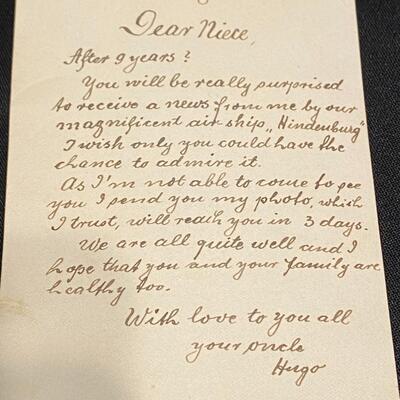 Dear Niece,
After 9 years?
You will be really surprised
to receive a news from me by our
magnificent air ship „Hindenburg"
I wish only you could have the
chance to admire it.
As I'm not able to come to see
you I send you my photo, which
I trust, will reach you in 3 days.
We are all quite well and I
hope that you and your family are
healthy too.
With love to you all
your oncle
Hugo